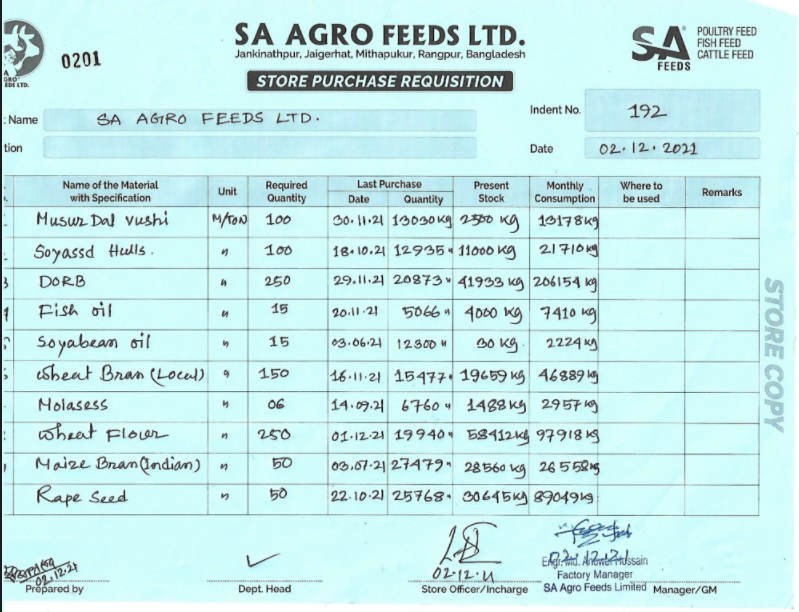 0201
SA AGRO FEEDS LTD.
Jankinathpur, Jaigerhat, Mithapukur, Rangpur, Bangladesh
STORE PURCHASE REQUISITION
SA FEEDS
POULTRY FEED
FISH FEED
CATTLE FEED
EDS LTD.
: Name SA AGRO FEEDS LTD.
Indent No. 192
tion
Date 02.12.2021
Name of the Material with Specification Unit Required Quantity Last Purchase Date Quantity Present Stock Monthly Consumption Where to be used Remarks
Musur Dal vushi M/TON 100 30.11.21 13030kg 2500 kg 13178kg
Soyassd Hulls. " 100 18.10.21 12935 " 11000kg 21710kg
3 DORB " 250 29.11.21 20873 " 41933 kg 206154 kg
Fish oil " 15 20.11.21 5066 " 4000 kg 7410 kg
Soyabean oil " 15 03.06.21 12300 " 30 kg. 2224kg
Wheat Bran (Local) " 150 16.11.21 15477 " 19659 kg 46889kg
Molasess " 06 14.09.21 6760 " 1488kg 2957kg
Wheat Flour " 250 01.12.21 19940 " 58412kg 97918kg
Maize Bran (Indian) " 50 03.07.21 27479 " 28560 kg 26558kg
Rape Seed " 50 22.10.21 25768 " 30645kg 89049kg
STORE COPY
02.12.21
Prepared by
Dept. Head
02.12.21
Store Officer/Incharge
02.12.21
Engr. Md. Anower Hossain
Factory Manager
SA Agro Feeds Limited
Manager/GM